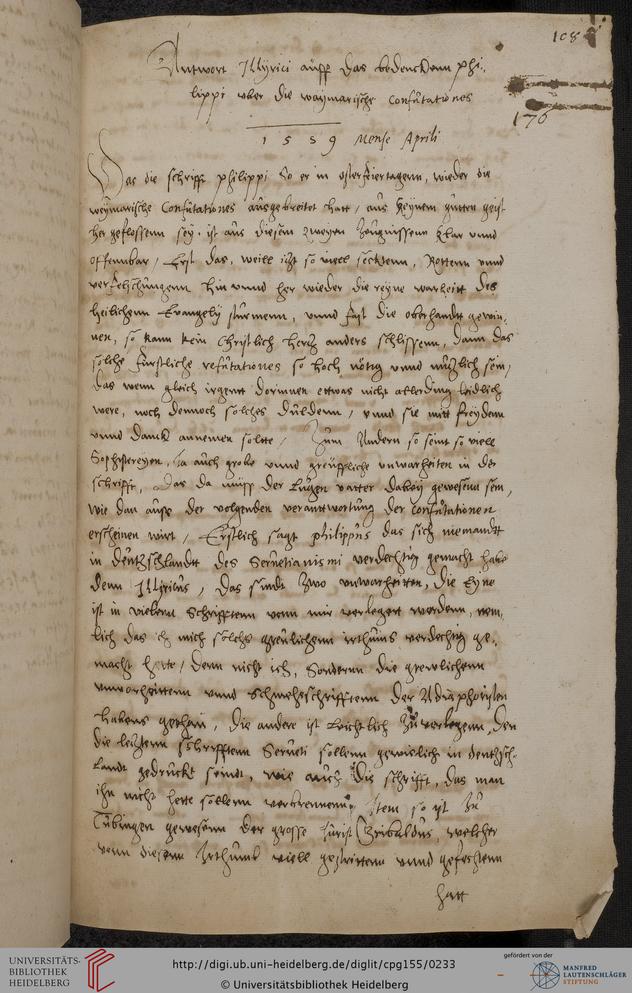 108
Antwort Illyrici auff das bedenckenn phi-
lippi vber die waymarische Confutationes
176
1 5 5 9 Mense Aprili
Das die schrifft philippi so er in osterfeiertagenn, wieder die
weymarische Confutationes ausgebreitet hatt / aus keynem gutten geist
her geflossenn sey, ist aus diesen zweyen zeugnissenn klar vnnd
offennbar / Erst das, weill itzt so viell secktenn, Rottenn vnd
verfelschungenn hin vnnd her wieder die reyne warheitt des
heiligenn Evangely sturmenn, vnnd fast die oberhandt gewin-
nen, so kann kein Christlich hertz anders schlissenn, dann das
solche furstliche refutationes so hoch nötig vnnd nutzlich sein /
das wenn gleich irgent dorinnen ettwas nicht allerding leidlich
were, noch dennoch solches duldenn / vnnd sie mitt freyden
vnnd danck annemen soltte / Zum Andern so seint so viele
Sophistereyen, ja auch grobe vnnd greuffliche vnwarheiten in der
schrifft, das da muss der Lugen vatter dabey gewesenn sein,
wie dan auss der volgenden verantwortung der Confutationen
erscheinen wirt / Erstlich sagt philippus das sich niemandt
in deutzschlandt des Seruetianismi verdechtig gemacht habe
denn Illyricus / Das sindt zwo vnwarheiten, Die Eyne
ist in vielenn Schrifftenn vonn mir verlegett wordenn, nem-
lich das ich mich solchs greulichenn irthums verdechtig ge-
macht hette / denn nicht ich, sondernn die grewlichenn
vnworheittenn vnnd schmeheschrifftenn der Adiaphoristen
habens gethan / Die andere ist leichtlich zu verlegenn, Den
die letztenn schrifftenn Serueti sollenn gewislich in deutzsch-
Landt gedruckt seindt, wie auch die schrifft, das man
ihn nicht hette sollenn verbrennenn, Item so ist zu
Tubingen gewesenn der grosse Jurist Gribaldus, welcher
vonn diesem Irthumb viell gestrittenn vnnd gefochtenn
hatt
UNIVERSITÄTS-
BIBLIOTHEK
HEIDELBERG
http://digi.ub.uni-heidelberg.de/diglit/cpg155/0233
© Universitätsbibliothek Heidelberg
gefördert von der
MANFRED
LAUTENSCHLÄGER
STIFTUNG